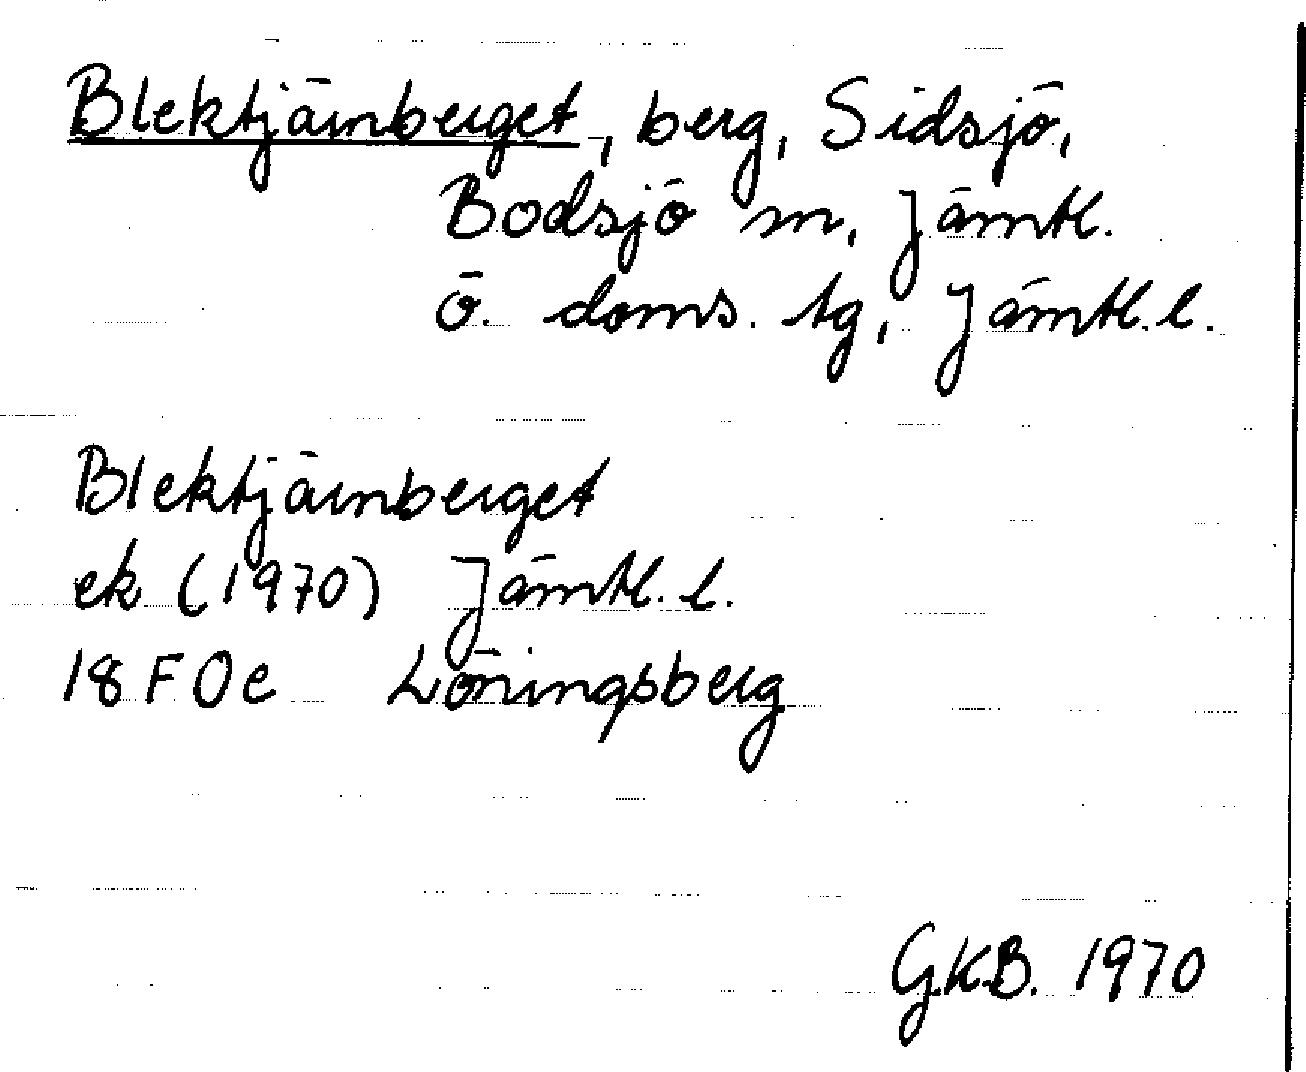 Blektjärnberget, berg, Sidsjö,
Bodsjö sn, Jämtl.
ö. doms. tg, Jämtl. l.
Blektjärnberget
ek (1970) Jämtl. l.
18 F 0 e Löningsberg
G.K.B. 1970